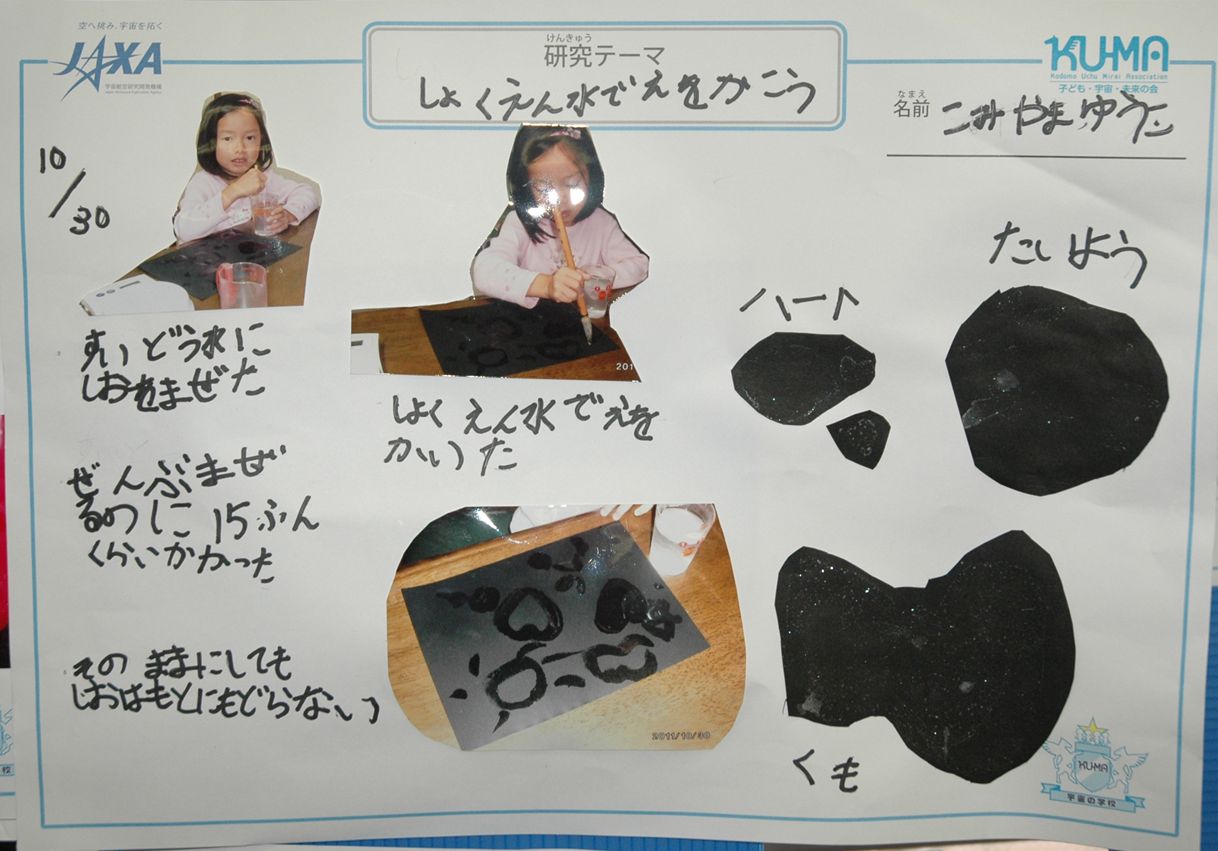 空へ挑み、宇宙を拓く
JAXA
宇宙航空研究開発機構
Japan Aerospace Exploration Agency
けんきゅう
研究テーマ
しょくえん水でえをかこう
KU-MA
Kodomo Uchu Mirai Association
子ども・宇宙・未来の会
なまえ
名前
こみやまゆうこ
10/30
すいどう水に
しおをまぜた
ぜんぶまぜ
るのに15ふん
くらいかかった
そのままにしても
しおはもとにもどらない
しょくえん水でえを
かいた
201
2011/10/30
ハート
たいよう
くも
KU-MA
宇宙の学校
校